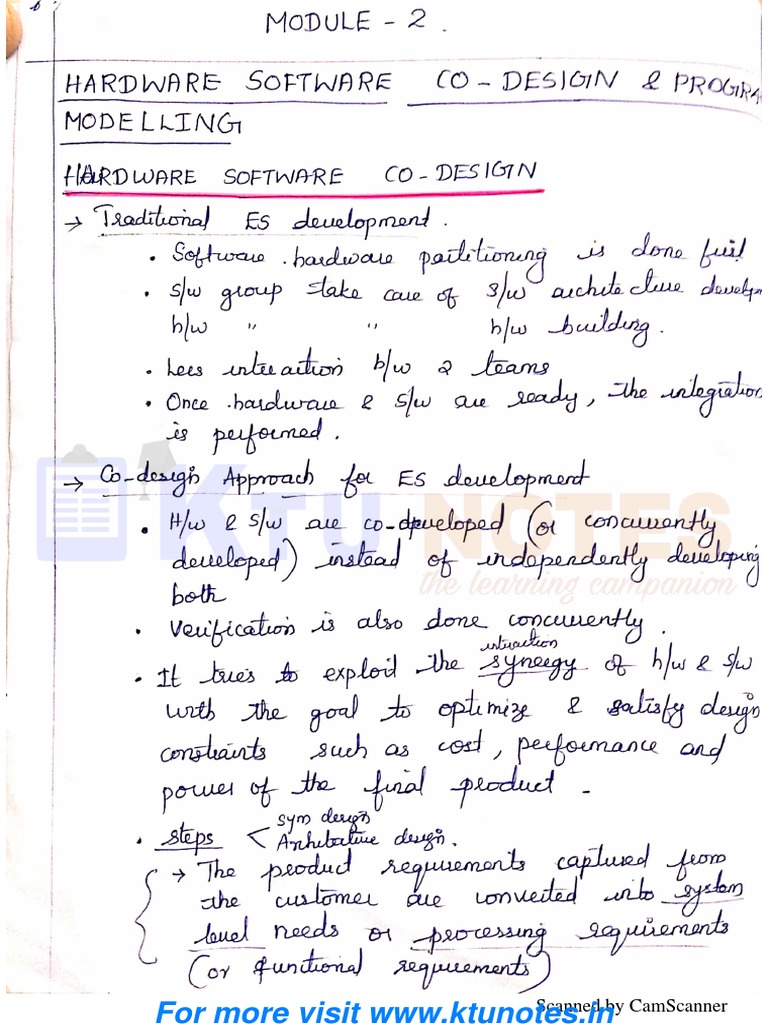 MODULE - 2.
HARDWARE SOFTWARE CO-DESIGN & PROGRA
MODELLING
HARDWARE SOFTWARE CO-DESIGN
→ Traditional ES development.
• Software hardware partitioning is done first
• S/w group take care of S/w architecture develop
h/w " " h/w building.
• Less interaction b/w 2 teams
• Once hardware & S/w are ready, the integration
is performed.
→ Co-design Approach for ES development
• H/w & S/w are co-developed (or concurrently
developed) instead of independently developing
both
• Verification is also done concurrently.
interaction
• It tries to exploit the synergy of h/w & s/w
with the goal to optimize & satisfy design
constraints such as cost, performance and
power of the final product -
sym design
• steps < Architecture design.
→ The product requirements captured from
the customer are converted into system
level needs or processing requirements
(or functional requirements)
KTU NOTES
the learning companion
Scanned by CamScanner
For more visit www.ktunotes.in